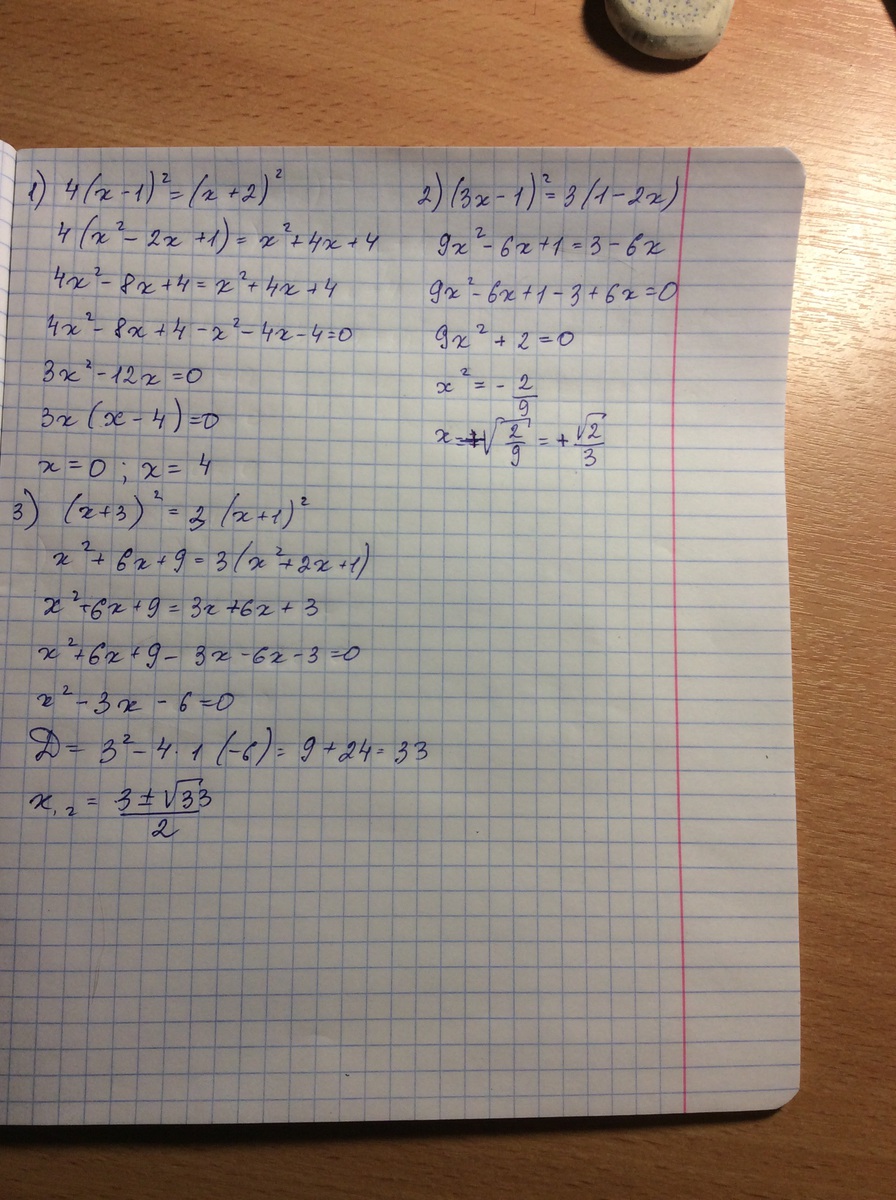 1) 4(x-1)²=(x+2)²
4(x²-2x+1)=x²+4x+4
4x²-8x+4=x²+4x+4
4x²-8x+4-x²-4x-4=0
3x²-12x=0
3x(x-4)=0
x=0; x=4
2) (3x-1)²=3(1-2x)
9x²-6x+1=3-6x
9x²-6x+1-3+6x=0
9x²+2=0
x²=-2/9
x=±√(2/9)=+√2/3
3) (x+3)²=3(x+1)²
x²+6x+9=3(x²+2x+1)
x²+6x+9=3x+6x+3
x²+6x+9-3x-6x-3=0
x²-3x-6=0
D=3²-4·1(-6)=9+24=33
x₁,₂=(3±√33)/2